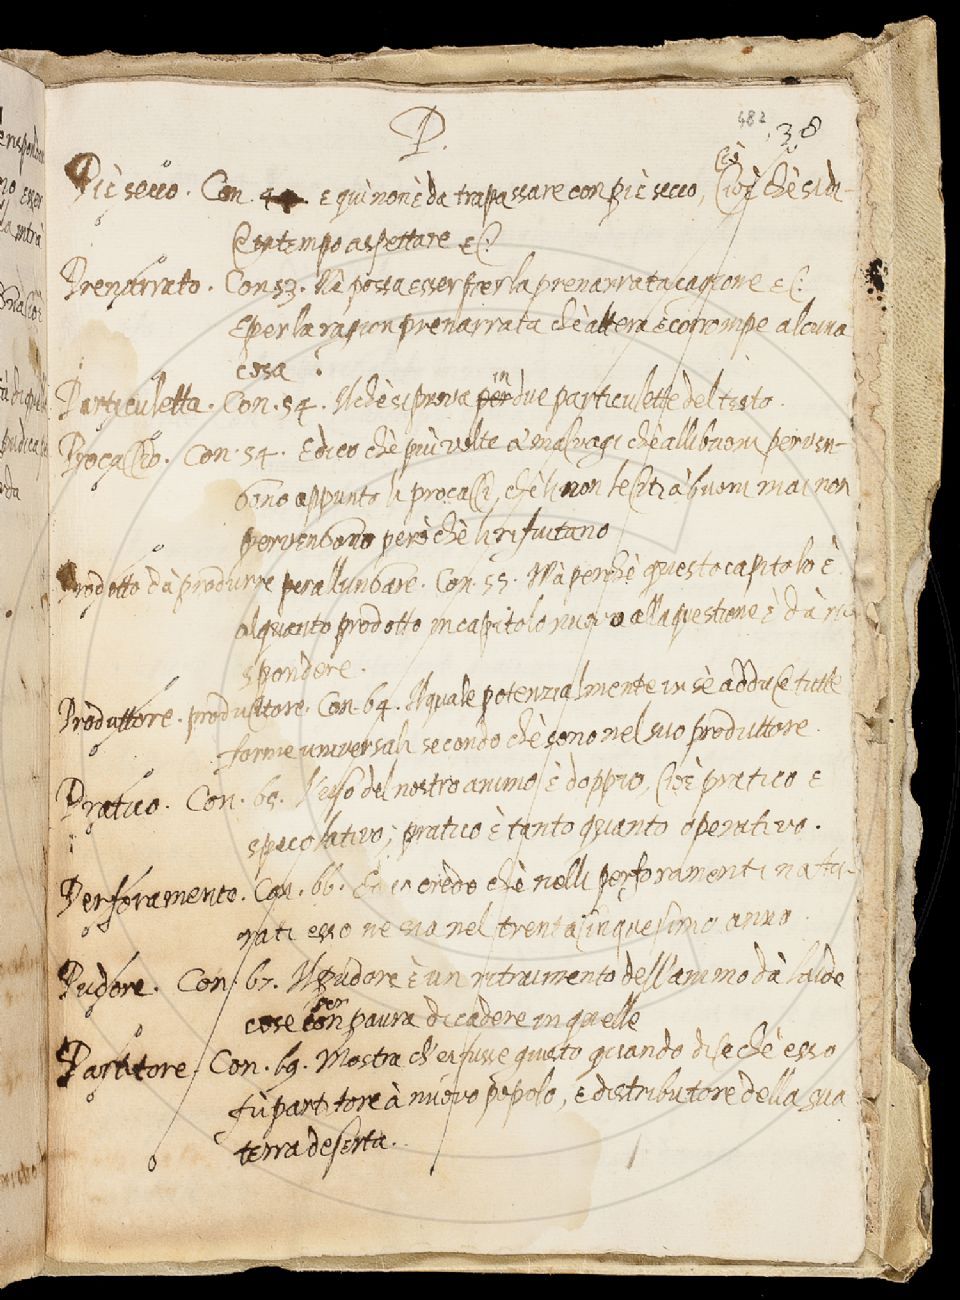 P.
482
38
Piè secco. Con. 44 E quì non è da trapassare con piè secco, Cioè chè si di-
C in tempo aspettare E C?
Prenarrato. Con 53. Nè possa esser per la prenarrata cagione E C:
E per la ragion prenarrata chè altera E corrompe alcuna
cosa :
Particuletta. Con. 54. Il chè si prova per in due particulette dèl testo.
Procaccio. Con. 54. E dico chè più volte a' malvagi, chè alli buoni perven-
gono appunto li procacci, chè li non leciti à buoni mai non
pervengono però chè li rifiutano
Prodotto dà produrre per allungare. Con. 55. Mà perchè questo capitolo è
alquanto prodotto in capitolo nuovo alla questione è dà ri-
spondere.
Produttore. producitore. Con. 64. Il quale potenzialmente in sè adduce tutte
forme universali secondo chè sono nel suo produttore.
Pratico. Con. 65. L'uso dèl nostro animo è doppio, Cioè pratico E
specolativo; pratico è tanto quanto operativo.
Perforamento. Con. 66. Ed io crèdo chè nelli perforamenti natu-
rati esso ne sia nel trentacinquesimo anno.
Pudore. Con. 67. Il pudore è un ritraimento dell'animo dà laide
cose con per paura di cadere in quelle
Partitore. Con. 69. Mostra ch'ei fusse giusto quando dice chè esso
fù partitore à nuovo popolo, E distributore della sua
terra deserta.